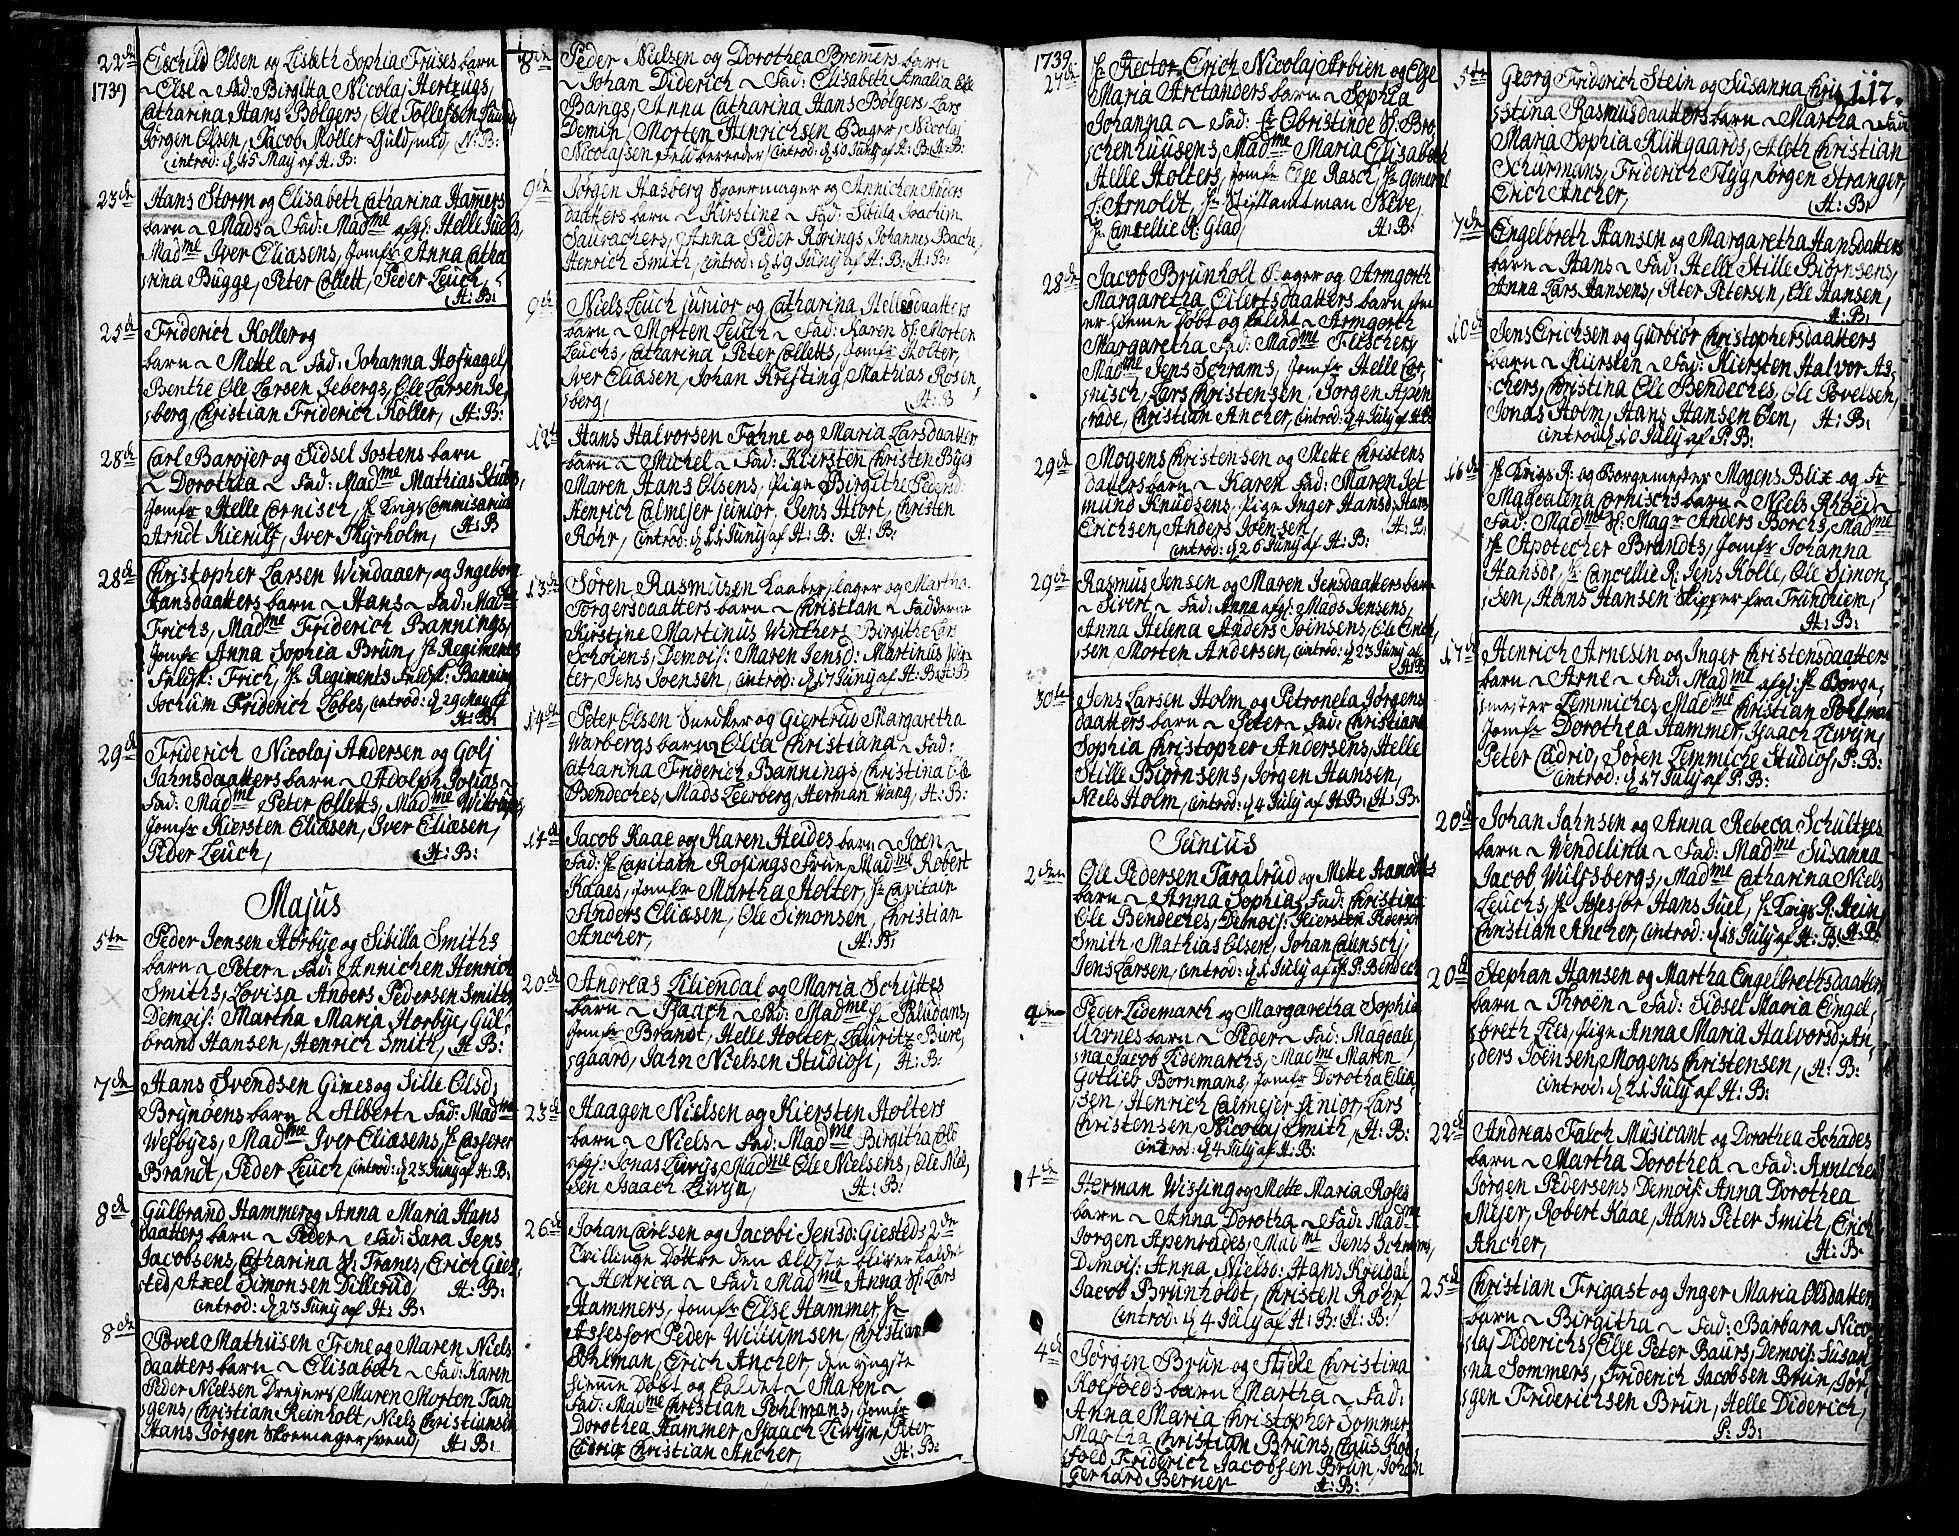 22de
1739
Eschild Olsen og Lisbeth Sophia Friises barn
~ Else ~ Fad: Birgitta Nicolaj Hertzugs,
Catharina Hans Bølgers, Ole Tollefsen
Jørgen Olsen, Jacob Møller Guldsmed, N: B:
introd: d. 15 May af H: B:
23de
Hans Storm og Elisabeth Catharina Hamers
barn ~ Mads ~ Fad: Madme afg: Helle Juels,
Madme Iver Eliæsens, Jomfr Anna Catha
rina Bugge, Peter Collett, Peder Leuch,
H: B:
25de
Friderich Koller og
barn ~ Mette ~ Fad: Johanna Hofnagel,
Benthe Ole Larsen Jebergs, Ole Larsen Je
sberg, Christian Friderich Köller, H: B:
28de
Carl Barøjer og Sidsel Jostens barn
~ Dorothea ~ Fad: Madme Mathias
Jomfr Helle Cornisch, Hr Krigs Commisarius
Arndt Kierulf, Iver Thyrholm, H: B
28de
Christopher Larsen Windaaer, og Ingeborg
Hansdaatters barn ~ Hans ~ Fad: Madme
Frichs, Madme Friderich Bannings,
Jomfr Anna Sophia Brun, Hr Regiments
Feldsk: Frich, Hr Regiments Feldsk: Banning
Jochum Friderich Lobes, introd: d. 29 May af
H: B:
29de
Friderich Nicolaj Andersen og Golj
Jahnsdaatters barn ~ Adolph Josias ~
Fad: Madme Peter Colletts, Madme
Jomfr Kiersten Eliæsen, Iver Eliæsen,
Peder Leuch, H: B:
Majus
5te
Peder Jensen Horbye og Sibilla Smiths
barn ~ Peter ~ Fad: Annichen Henrich
Smiths, Lovisa Anders Pedersen Smiths
Demois: Martha Maria Horbye, Gul
brand Hansen, Henrich Smith, H: B:
7de
Hans Svendsen Gimes og Sille Olsd:
Brynoens barn ~ Albert ~ Fad: Madme
Wesbyes, Madme Iver Eliæsens, Hr Casserer
Brandt, Peder Leuch, introd: d. 23 Juny af H: B:
8de
Gulbrand Hammer og Anna Maria Hans
daatters barn ~ Peder ~ Fad: Sara Jens
Jacobsens, Catharina Hr Franes, Erich Gies
sted, Axel Simonsen Dillerud, H: B:
introd: d. 23 Juny af H: B:
8de
Povel Mathiisen Trene og Maren Niels
daatters barn ~ Elisabeth ~ Fad: Karen
Peder Nielsen Drejers, Maren Morten Tan
gens, Christian Reinholt, Niels Christiansen
Hans Jørgen Skoemager svend, H: B:
8de
Peder Nielsen og Dorothea Bremers barn
~ Johan Diderich ~ Fad: Elisabeth Amalia Ole
Bangs, Anna Catharina Hans Bølgers, Lars
Demin, Morten Hinrichsen Bager, Nicolaj
Nicolajsen Feldbereeder, introd: d. 10 July af H: B: H: B:
9de
Jørgen Hasberg Skoemager og Annichen Anders
daatters barn ~ Kirstine ~ Fad: Sibilla Joachim
Saurachers, Anna Peder Rørings, Johannes Bache,
Henrich Smith, introd: d. 19 Juny af H: B: H: B:
9de
Niels Leuch junior og Catharina Hellesdaatters
barn ~ Morten Leuch ~ Fad: Karen Hr Morten
Leuchs, Catharina Peter Colletts, Jomfr Holter,
Iver Eliæsen, Johan Kristing, Mathias Rosen
sberg, H: B
12te
Hans Halvorsen Fahne og Maria Larsdaatter
barn ~ Michel ~ Fad: Kiersten Christen Byes
Maren Hans Olsens, Pige Birgithe Pedersd:
Henrich Calmejer junior, Jens Hort, Christen
Rohr, introd: d. 11 Juny af H: B: H: B:
13de
Søren Rasmusen Kaaberslager og Martha
Torgersdaatters barn ~ Christian ~ Fadderne
Kirstine Martinus Winthers, Birgithe Lars
Schoiens, Demois: Maren Jensd: Martinus Win
ter, Jens Svensen, introd: d. 17 Juny af H: B: H: B
14de
Peter Olsen Snedker og Giertrud Margaretha
Warbergs barn ~ Olia Christiana ~ Fad:
Catharina Friderich Bannings, Christina Ole
Bendeches, Mads Leerberg, Herman Wang, H: B:
14de
Jacob Kaae og Karen Heides barn ~ Joen ~
Fad: Hr Capitain Rosings Frue, Madme Robert
Kaaes, Jomfr Martha Holter, Hr Capitain
Anders Eliæsen, Ole Simonsen, Christian
Ancher, H: B:
20de
Andreas Liliendal og Maria Schyttes
barn ~ Isaach ~ Fad: Madme Hr Paludans,
Jomfr Brandt, Helle Holter, Lauritz Biere
sgaard, Jahn Nielsen Studiosi, H: B:
23de
Haagen Nielsen og Kiersten Holters
barn ~ Niels ~ Fad: Madme Birgitha
afg: Jonas Liwijs Madme Ole Nielsens, Ole Niel
sen Isaach Liwyn, H: B:
26de
Johan Carlsen og Jacobi Jensd: Giesteds 2de
Tvillinge Døttre den ældste bliver kaldet
~ Henrica ~ Fad: Madme Anna Hr Lars
Hammers, Jomfr Else Hammer, Hr
Assessor Peder Willumsen, Christian
Pohlman, Erich Ancher, den yngste
hieme Døbt og kaldet ~ Maren ~
Fad: Madme Christian Pohlmans, Jomfr
Dorothea Hammer, Isaach Liwyn, Peter
Cadrio, Christian Ancher, H: B:
1739
27de
Hr Rector Erich Nicolaj Arbien og Else
Maria Arctanders barn ~ Sophia
Johanna ~ Fad: Fr Obristinde Hr Bro
schenhuusens, Madme Maria Elisabeth
Helle Holters, Jomfr Else Rasch, Hr General
L. Arnoldt, Hr Stiftamtman Neve,
Hr Cancellie R: Glad, H: B:
28de
Jacob Brunholt Bager og Armgorth
Margaretha Eilertsdaatters barn som
er hieme døbt og kaldet ~ Armgorth
Margaretha Fad: Madme Flescher,
Madme Jens Schrams, Jomfr Helle Cor
nisch, Lars Christensen, Jørgen Apen
rade, Christian Ancher, introd: d. 4 July af H: B:
29de
Mogens Christensen og Mette Christens
daatters barn ~ Karen Fad: Maren Jet
mund Knudsens, Pige Inger Hansd: Hans
Erichsen, Anders Joensen, H: B:
introd: d. 26 Juny af H: B:
29de
Rasmus Jensen og Maren Jensdaatters barn
~ Sivert ~ Fad: Anna afg: Mads Jensens,
Anna Helena Anders Joensens, Ole Erich
sen, Morten Andersen, introd: d. 23 Juny af
H: B
30te
Jens Larsen Holm og Petronela Jørgens
daatters barn ~ Peter ~ Fad: Christiane
Sophia Christopher Andersens, Helle
Stille Biørnsens, Jørgen Hansen,
Niels Holm, introd: d. 4 July af H: B: H: B:
Junius
2den
Ole Pedersen Taralrud og Mette Hamodts
barn ~ Anna Sophia, Fad: Christina
Ole Bendeches, Demois: Kiersten Roersdr
Smith, Mathias Olsen, Johan Calenschj,
Jens Larsen, introd: d. 1 July af Hr P: Bendech
4den
Peder Lidemarch og Margaretha Sophia
Urnes barn ~ Peder ~ Fad: Magdale
na Jacob Lidemarchs, Madme Maren
Gotlieb Bornmans, Jomfr Dorotha Eliæ
sen, Henrich Calmejer junior, Lars
Christensen, Nicolaj Smith, H: B:
introd: d. 4 July af H: B:
4de
Herman Wissing og Mette Maria Roses
barn ~ Anna Dorotha ~ Fad: Madme
Jørgen Apenrades, Madme Jens Schrams,
Demois: Anna Nielsd: Hans Kreidal,
Jacob Brunholdt, Christen Rohr
introd: d. 4 July af H: B: H: B:
4de
Jørgen Brun og Sidle Christina
Koefoeds barn Martha ~ Fad:
Anna Maria Christopher Sommer
Martha Christian Bruns, Claus Koe
foed, Friderich Jacobsen Brun, Johan
Gerhard Berner H: B:
117.
5te
Georg Friderich Stein og Susanna Chri
stina Rasmusdaatters barn ~ Martha ~ Fad
Maria Sophia Klitgaards, Aloth Christian
Schurmans, Friderich Flyg, Jørgen Stranger,
Erich Ancher, H: B:
7de
Engelbreth Hansen og Margaretha Hansdaatters
barn ~ Hans ~ Fad: Helle Stille Biørnsens,
Anna Lars Hansens, Peter Petersen, Ole Hansen,
H: B:
10de
Jens Erichsen og Gurbiør Christophersdaatters
barn ~ Kiersten ~ Fad: Kiersten Halvor As
chers, Christina Ole Bendeches, Ole Povelsen,
Jonas Holm, Hans Hansen Een, H: B:
introd: d. 10 July af P: B:
16de
Hr Krigs R: og Borgemester Mogens Blix og Fr
Magdalena Cornischs barn ~ Niels Arbøid ~
Fad: Madme Hr Magr Anders Borchs, Madme
Hr Apotecher Brandts, Jomfr Johanna
Hansdr, Hr Cancellie R: Jens Kolle, Ole Simon
sen, Hans Hansen Skipper fra Trinchiem,
H: B:
17de
Henrich Arnesen og Inger Christensdaatters
barn ~ Arne ~ Fad: Madme afg: Hr Borge
mester Lemmiches Madme Christian Pohlman
Jomfr Dorothea Hammer, Isaach Liwyn,
Peter Cadrio, Søren Lemmiche Studiosi, P: B:
introd: d. 17 July af P: B:
20de
Johan Jahnsen og Anna Rebeca Schultzes
barn ~ Wendelina ~ Fad: Madme Susanna
Jacob Wilfsbergs, Madme Catharina Niels
Leuchs, Hr Assessor Hans Juel, Hr Krigs R: Hein,
Christian Ancher, introd: d. 18 July af H: B: H: B:
20de
Stephan Hansen og Martha Engelbrethsdaatters
barn ~ Throen ~ Fad: Sidsel Maria Engel
breth Lies, Pige Anna Maria Halvorsd: An
ders Joensen, Mogens Christensen, H: B:
introd: d. 21 July af H: B:
22de
Andreas Falch Musicant og Dorothea Schades
barn ~ Martha Dorothea ~ Fad: Annichen
Jørgen Pedersens Demois: Anna Dorothea
Mejer, Robert Kaae, Hans Peter Smith, Erich
Ancher, H: B:
25de
Christian Frigast og Inger Maria Olsdatters
barn ~ Birgitha ~ Fad: Barbara Nico
laj Diderichs, Else Peter Baurs, Demois: Susan
na Sommers, Friderich Jacobsen Brun, Jør
gen Friderichsen Brun, Helle Diderich,
P: B: